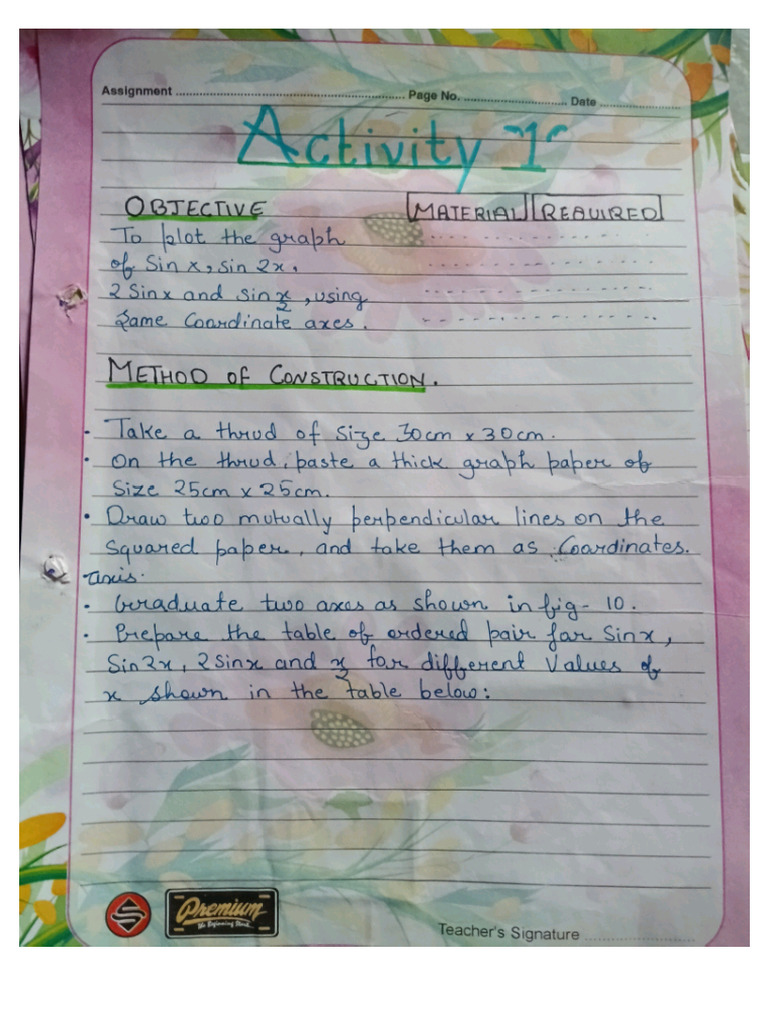 Assignment ........ Page No. ........ Date ........
Activity "1"
OBJECTIVE
MATERIAL REQUIRED
To plot the graph
of Sin x, Sin 2x,
2 Sin x and Sin x/2, using
Same Coordinate axes.
METHOD OF CONSTRUCTION.
• Take a thrud of Size 30cm x 30cm.
• On the thrud, paste a thick graph paper of
Size 25cm x 25cm.
• Draw two mutually perpendicular lines on the
Squared paper, and take them as Coordinates.
axis.
• Graduate two axes as shown in fig - 10.
• Prepare the table of ordered pair for Sin x,
Sin 2x, 2 Sin x and x/2 for different Values of
x shown in the table below:
Premium
the Beginning Mark
Teacher's Signature ........